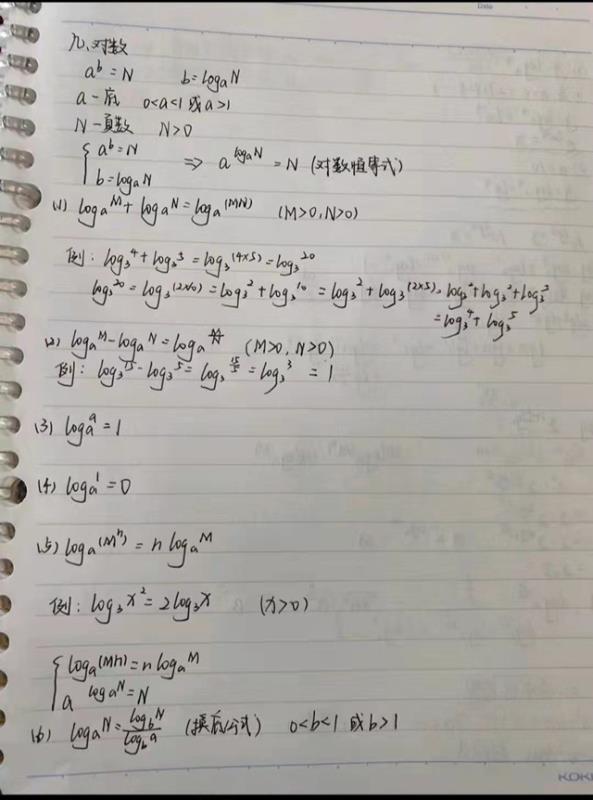 Date
九、对数
a^b = N  b = log_a N
a — 底  0<a<1 或 a>1
N — 真数  N>0
{ a^b = N
b = log_a N  ⇒ a^{log_a N} = N (对数恒等式)
(1) log_a M + log_a N = log_a (MN)  (M>0, N>0)
例: log_3 4 + log_3 5 = log_3 (4×5) = log_3 20
log_3 20 = log_3 (2×10) = log_3 2 + log_3 10 = log_3 2 + log_3 (2×5) = log_3 2 + log_3 2 + log_3 5
= log_3 4 + log_3 5
(2) log_a M - log_a N = log_a M/N  (M>0, N>0)
例: log_3 15 - log_3 5 = log_3 15/5 = log_3 3 = 1
(3) log_a a = 1
(4) log_a 1 = 0
(5) log_a (M^n) = n log_a M
例: log_3 x^2 = 2log_3 x  (x>0)
{ log_a (Mn) = n log_a M
a^{log_a N} = N
(6) log_a N = log_b N / log_b a (换底公式)  0<b<1 或 b>1
KOK